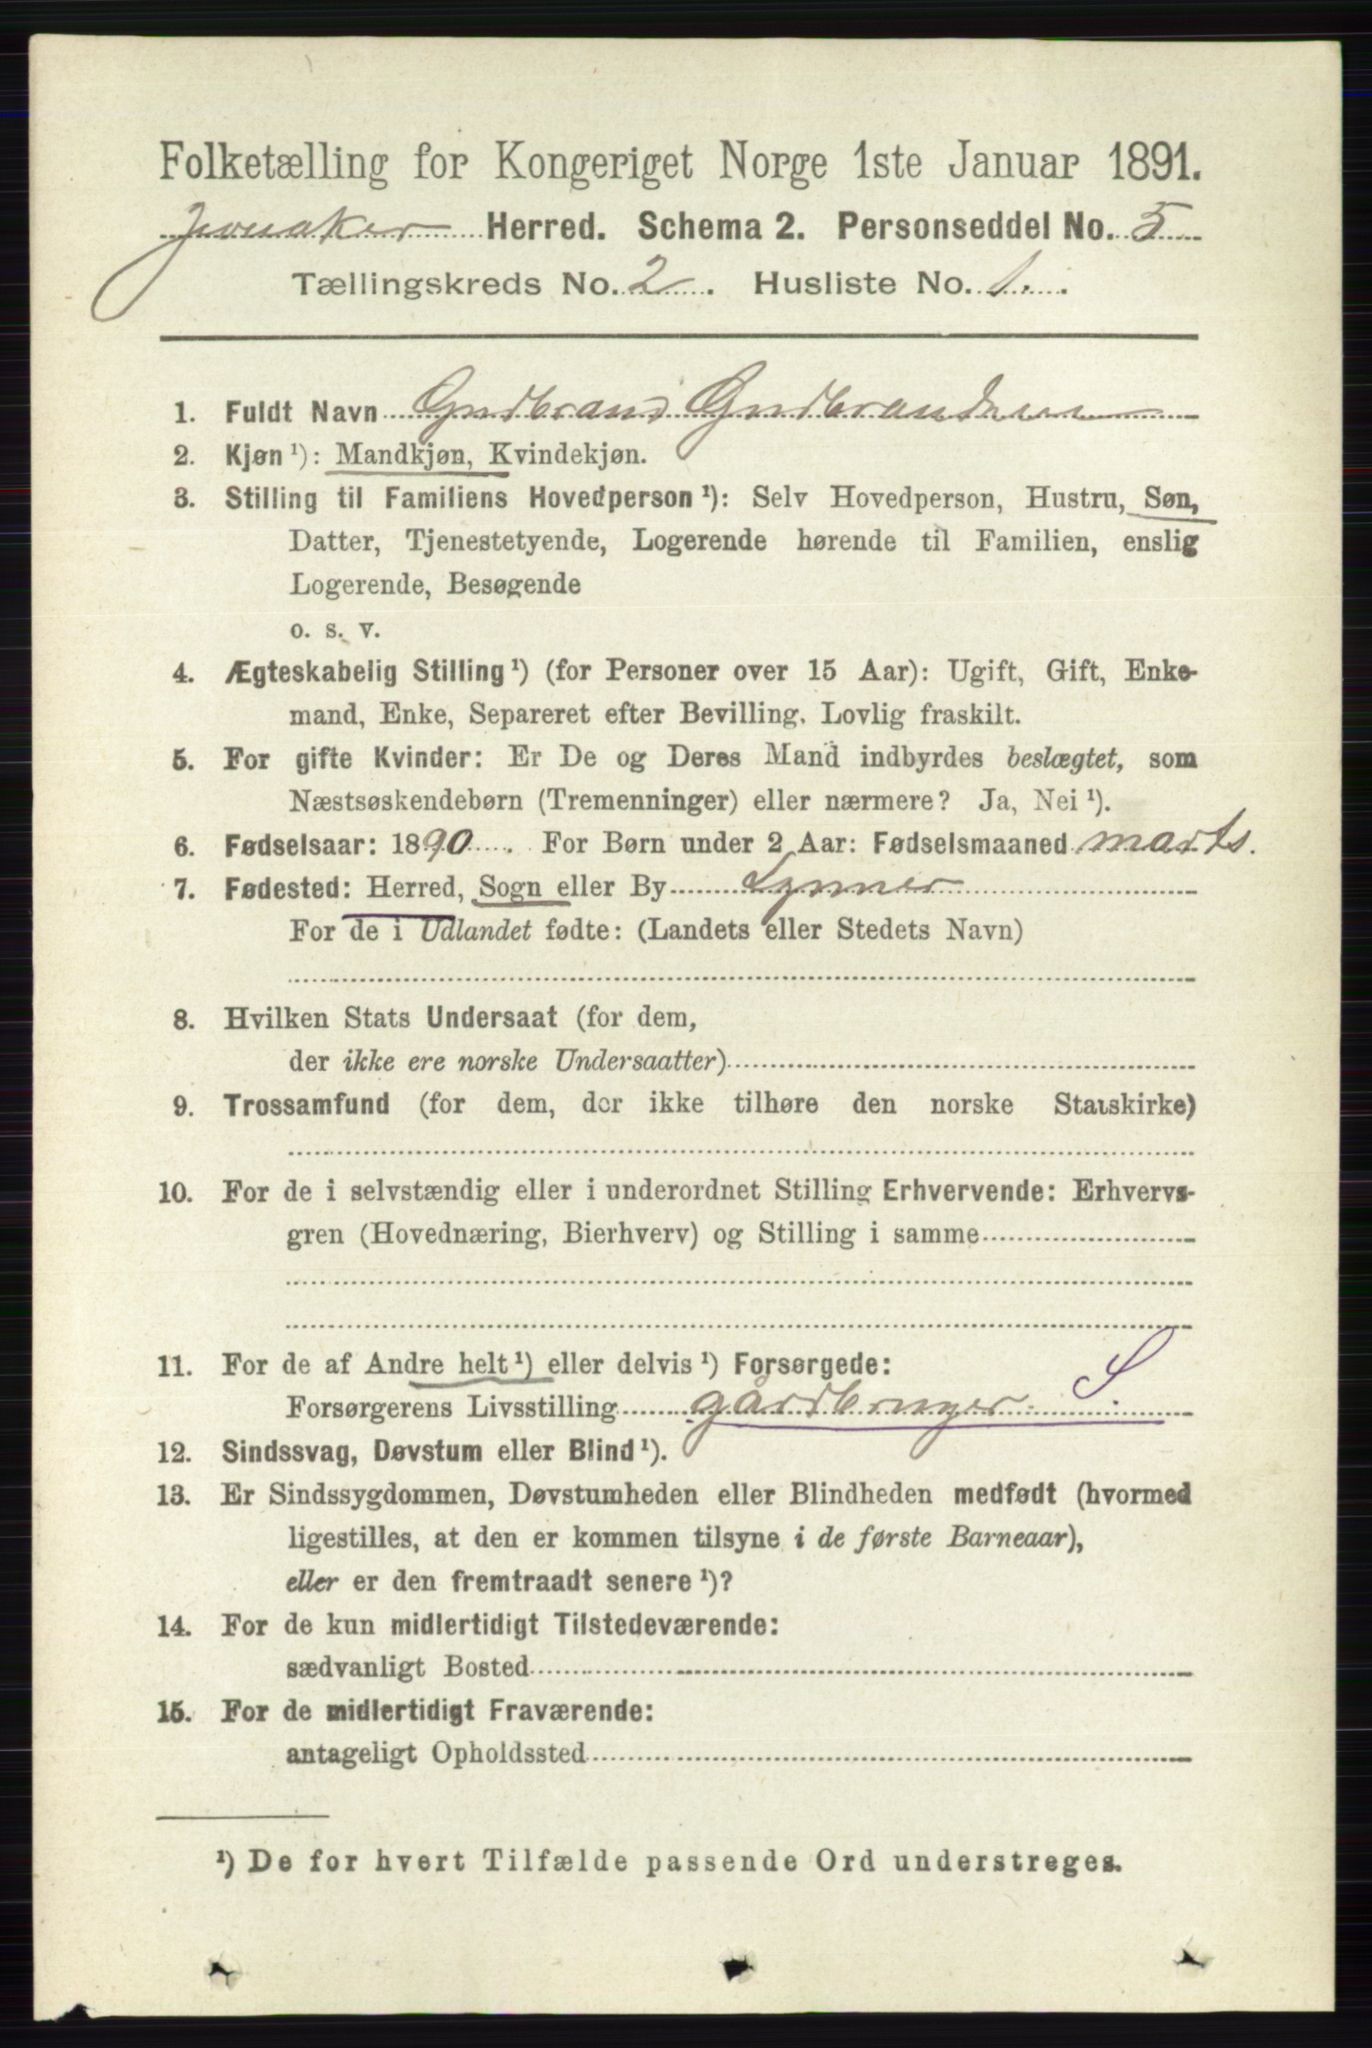 Folketælling for Kongeriget Norge 1ste Januar 1891.
Jevnaker Herred. Schema 2. Personseddel No. 5
Tællingskreds No. 2. Husliste No. 1.
1. Fuldt Navn Gudbrand Gudbrandsen
2. Kjøn ¹): Mandkjøn, Kvindekjøn.
3. Stilling til Familiens Hovedperson ¹): Selv Hovedperson, Hustru, Søn,
Datter, Tjenestetyende, Logerende hørende til Familien, enslig
Logerende, Besøgende
o. s. v.
4. Ægteskabelig Stilling ¹) (for Personer over 15 Aar): Ugift, Gift, Enke-
mand, Enke, Separeret efter Bevilling. Lovlig fraskilt.
5. For gifte Kvinder: Er De og Deres Mand indbyrdes beslægtet, som
Næstsøskendebørn (Tremenninger) eller nærmere? Ja, Nei ¹).
6. Fødselsaar: 1890. For Børn under 2 Aar: Fødselsmaaned marts.
7. Fødested: Herred, Sogn eller By Lynner
For de i Udlandet fødte: (Landets eller Stedets Navn)
8. Hvilken Stats Undersaat (for dem,
der ikke ere norske Undersaatter)
9. Trossamfund (for dem, der ikke tilhøre den norske Statskirke)
10. For de i selvstændig eller i underordnet Stilling Erhvervende: Erhvervs-
gren (Hovednæring, Bierhverv) og Stilling i samme
11. For de af Andre helt ¹) eller delvis ¹) Forsørgede:
Forsørgerens Livsstilling gårdbruger. S.
12. Sindssvag, Døvstum eller Blind ¹).
13. Er Sindssygdommen, Døvstumheden eller Blindheden medfødt (hvormed
ligestilles, at den er kommen tilsyne i de første Barneaar),
eller er den fremtraadt senere ¹)?
14. For de kun midlertidigt Tilstedeværende:
sædvanligt Bosted
15. For de midlertidigt Fraværende:
antageligt Opholdssted
¹) De for hvert Tilfælde passende Ord understreges.